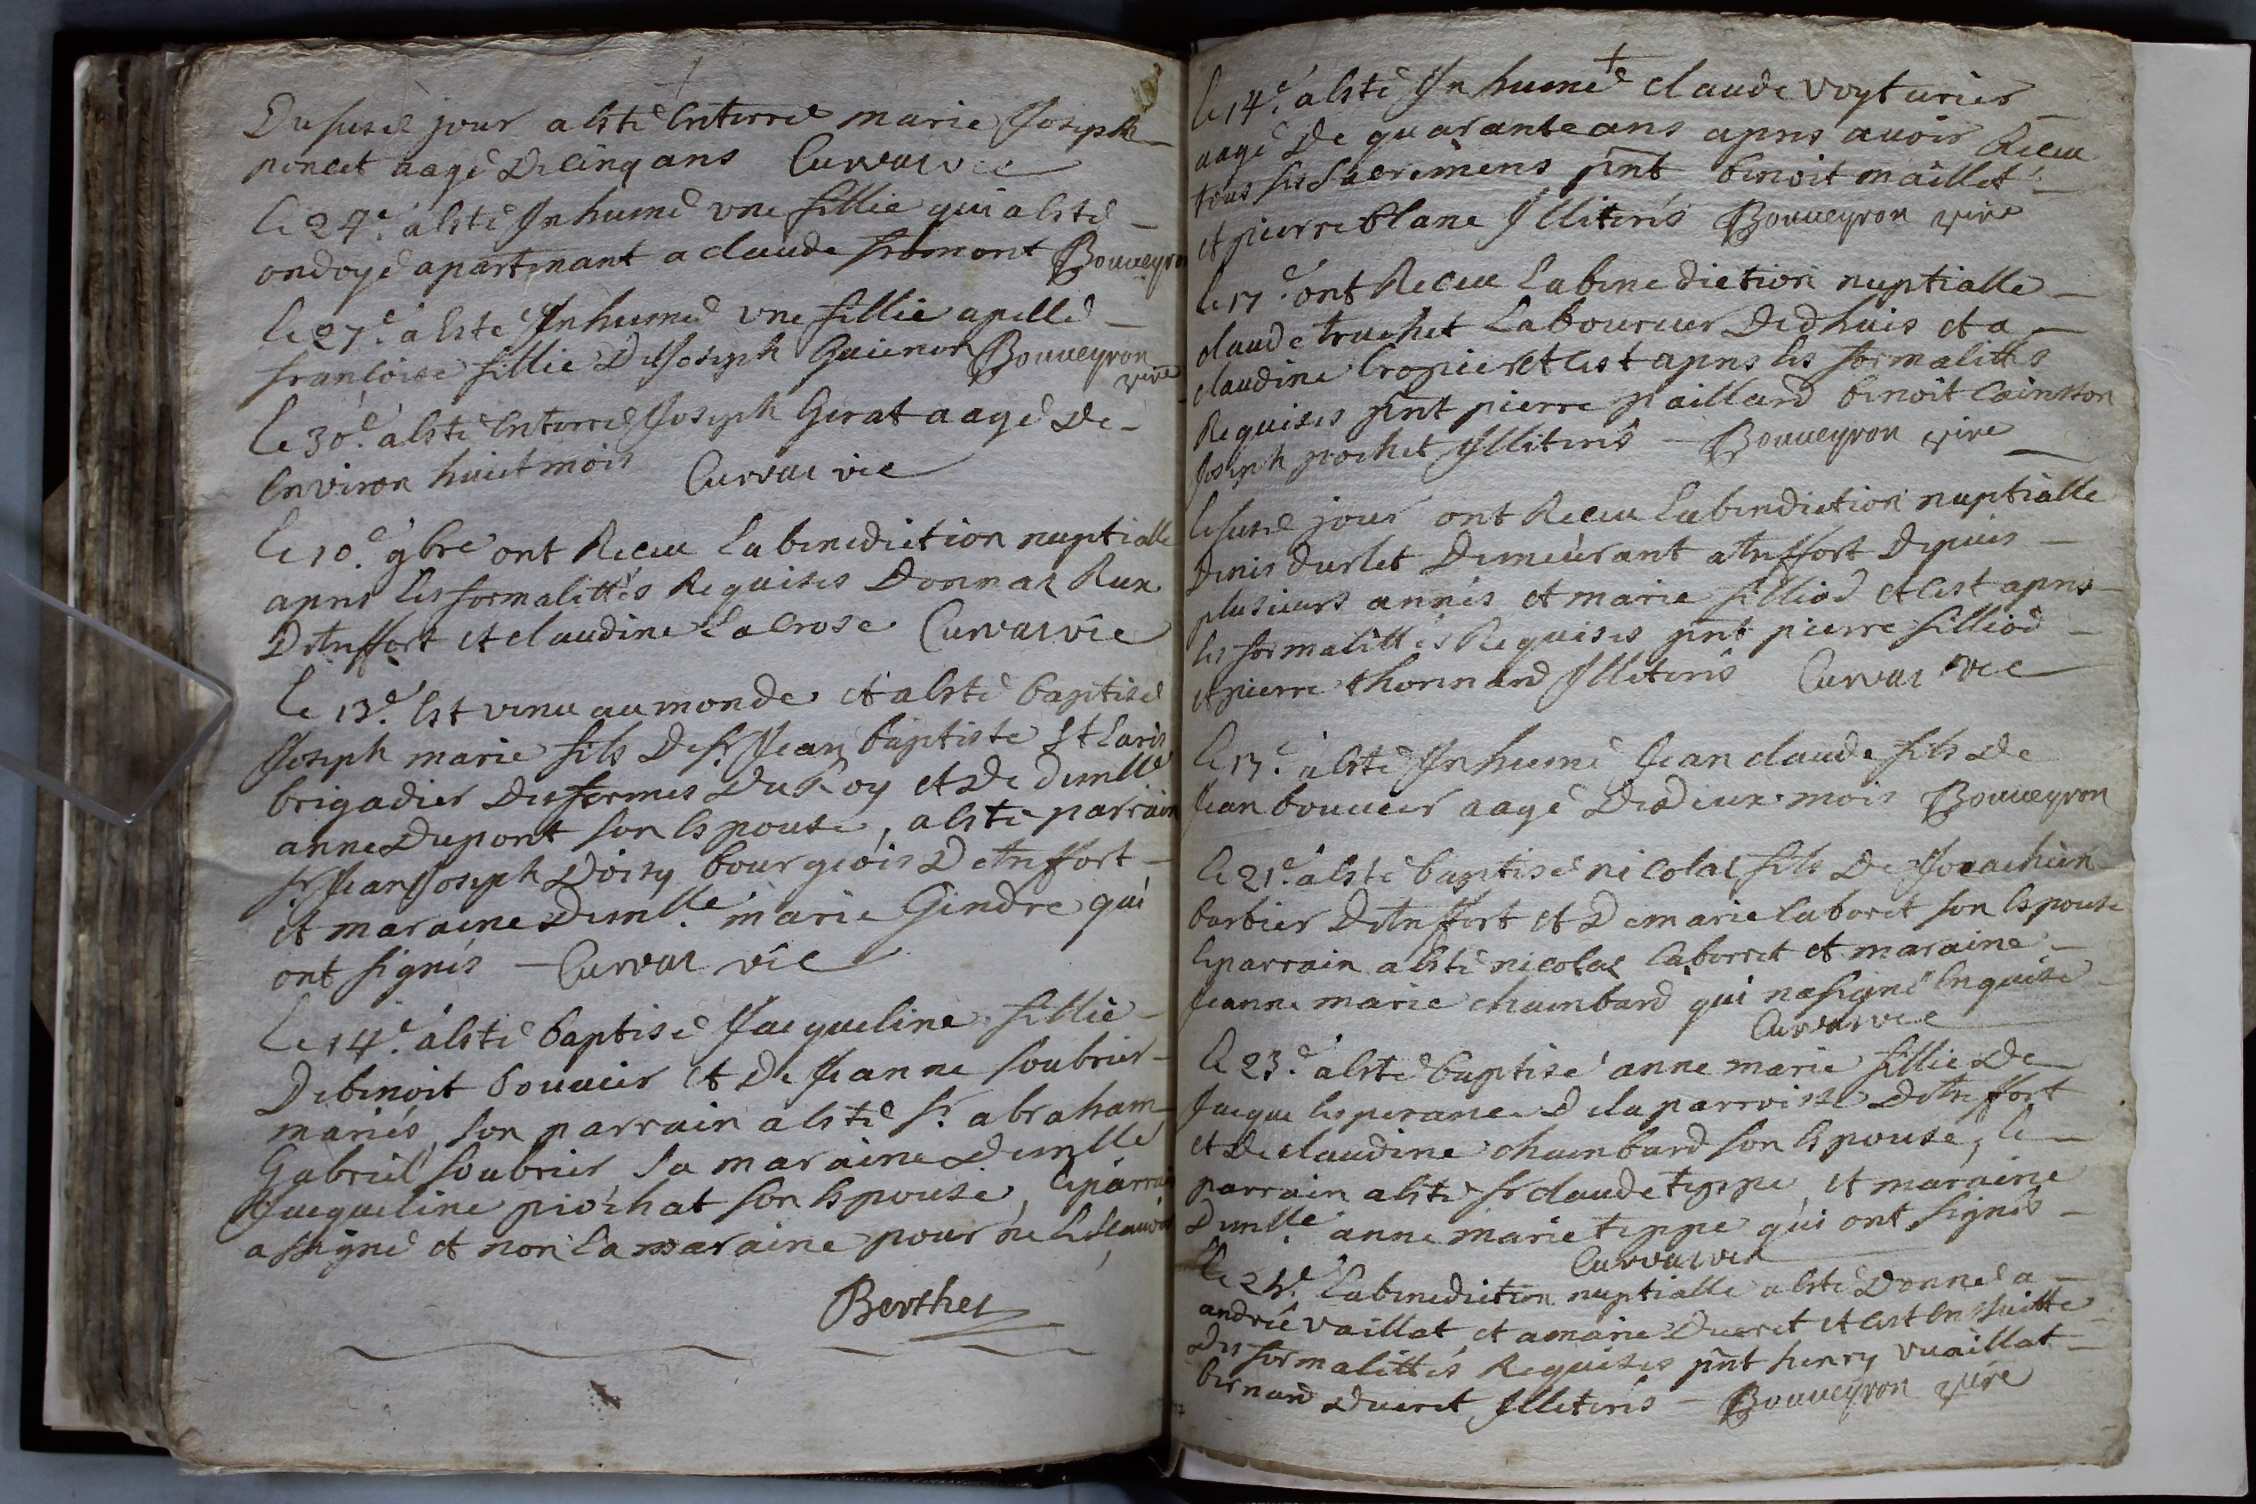 Du susd jour a esté enterré marie Joseph
poncet aagé de cinq ans Curvat vic
le 24e a esté Inhumé une fillie qui a esté
ondoyé apartenant a claude fromont Bouveyron
le 27e a esté Inhumé une fillie apellé
françoise fillie de Joseph Guienon Bouveyron
vire
le 30e a esté enterré Joseph Gerat aagé de
environ huict mois Curvat vic
le 10e 9bre ont Receu la benediction nuptialle
apres les formalittés Requises Donnat Rux
de treffort et claudine lacrose Curvat vic
le 13e est venu au monde et a esté baptisé
Joseph marie fils de sr Jean baptiste St
brigadier des fermes du Roy et de demlle
anne Dupont son espouse, a esté parrain
sr Jean Joseph Doisy bourgeois de treffort
et maraine demlle marie Gindre qui
ont signés Curvat vic
le 14e a esté baptisé Jacqueline fillie
de benoit bouvier et de Jeanne soubrier
mariés, son parrain a esté sr abraham
Gabriel soubrier sa maraine demlle
Jacqueline piochat son espouse, le parrain
a signé et non la maraine pour ne le scauoir
Berthet
le 14e a esté Inhumé claude voyturier
aagé de quarante ans apres avoir Receu
tous ses sacremens pnt benoit maillet
et pierre blanc Illiterés Bouveyron vire
le 17e ont Receu la benediction nuptialle
claude truchet laboureur de dhuis et a
claudine cropier et cest apres les formalittés
Requises pnt pierre paillard benoit
Joseph pochet Illiterés Bouveyron vire
le susd jour ont Receu la bendiction nuptialle
Denis durlet Demeurant a treffort depuis
plusieurs annés et marie filliod et cest apres
les formalittés Requises pnt pierre filliod
et pierre thonnard Illiterés Curvat vic
le 17e a esté Inhumé Jean claude fils de
Jean bouvier aagé de deux mois Bouveyron
le 21e a esté baptisé nicolas fils de Joachim
barbier de treffort et de marie laboret son espouse
le parrain a esté nicolas laborret et maraine
Jeanne marie chambard qui na signé enquise
Curvat vic
le 23e a esté baptisé anne marie fillie de
Jacque lesperance de la parroisse de treffort
et de claudine chambard son espouse, le
parrain a esté sr claude teppe, et maraine
demlle anne marie teppe qui ont signés
Curvat vic
le 24e la benediction nuptialle a esté donné a
andré vaillat et a marie Dueret et cest en suitte
des formalittés Requises pnt henry vuaillat
bernard dueret Illiterés Bouveyron vire